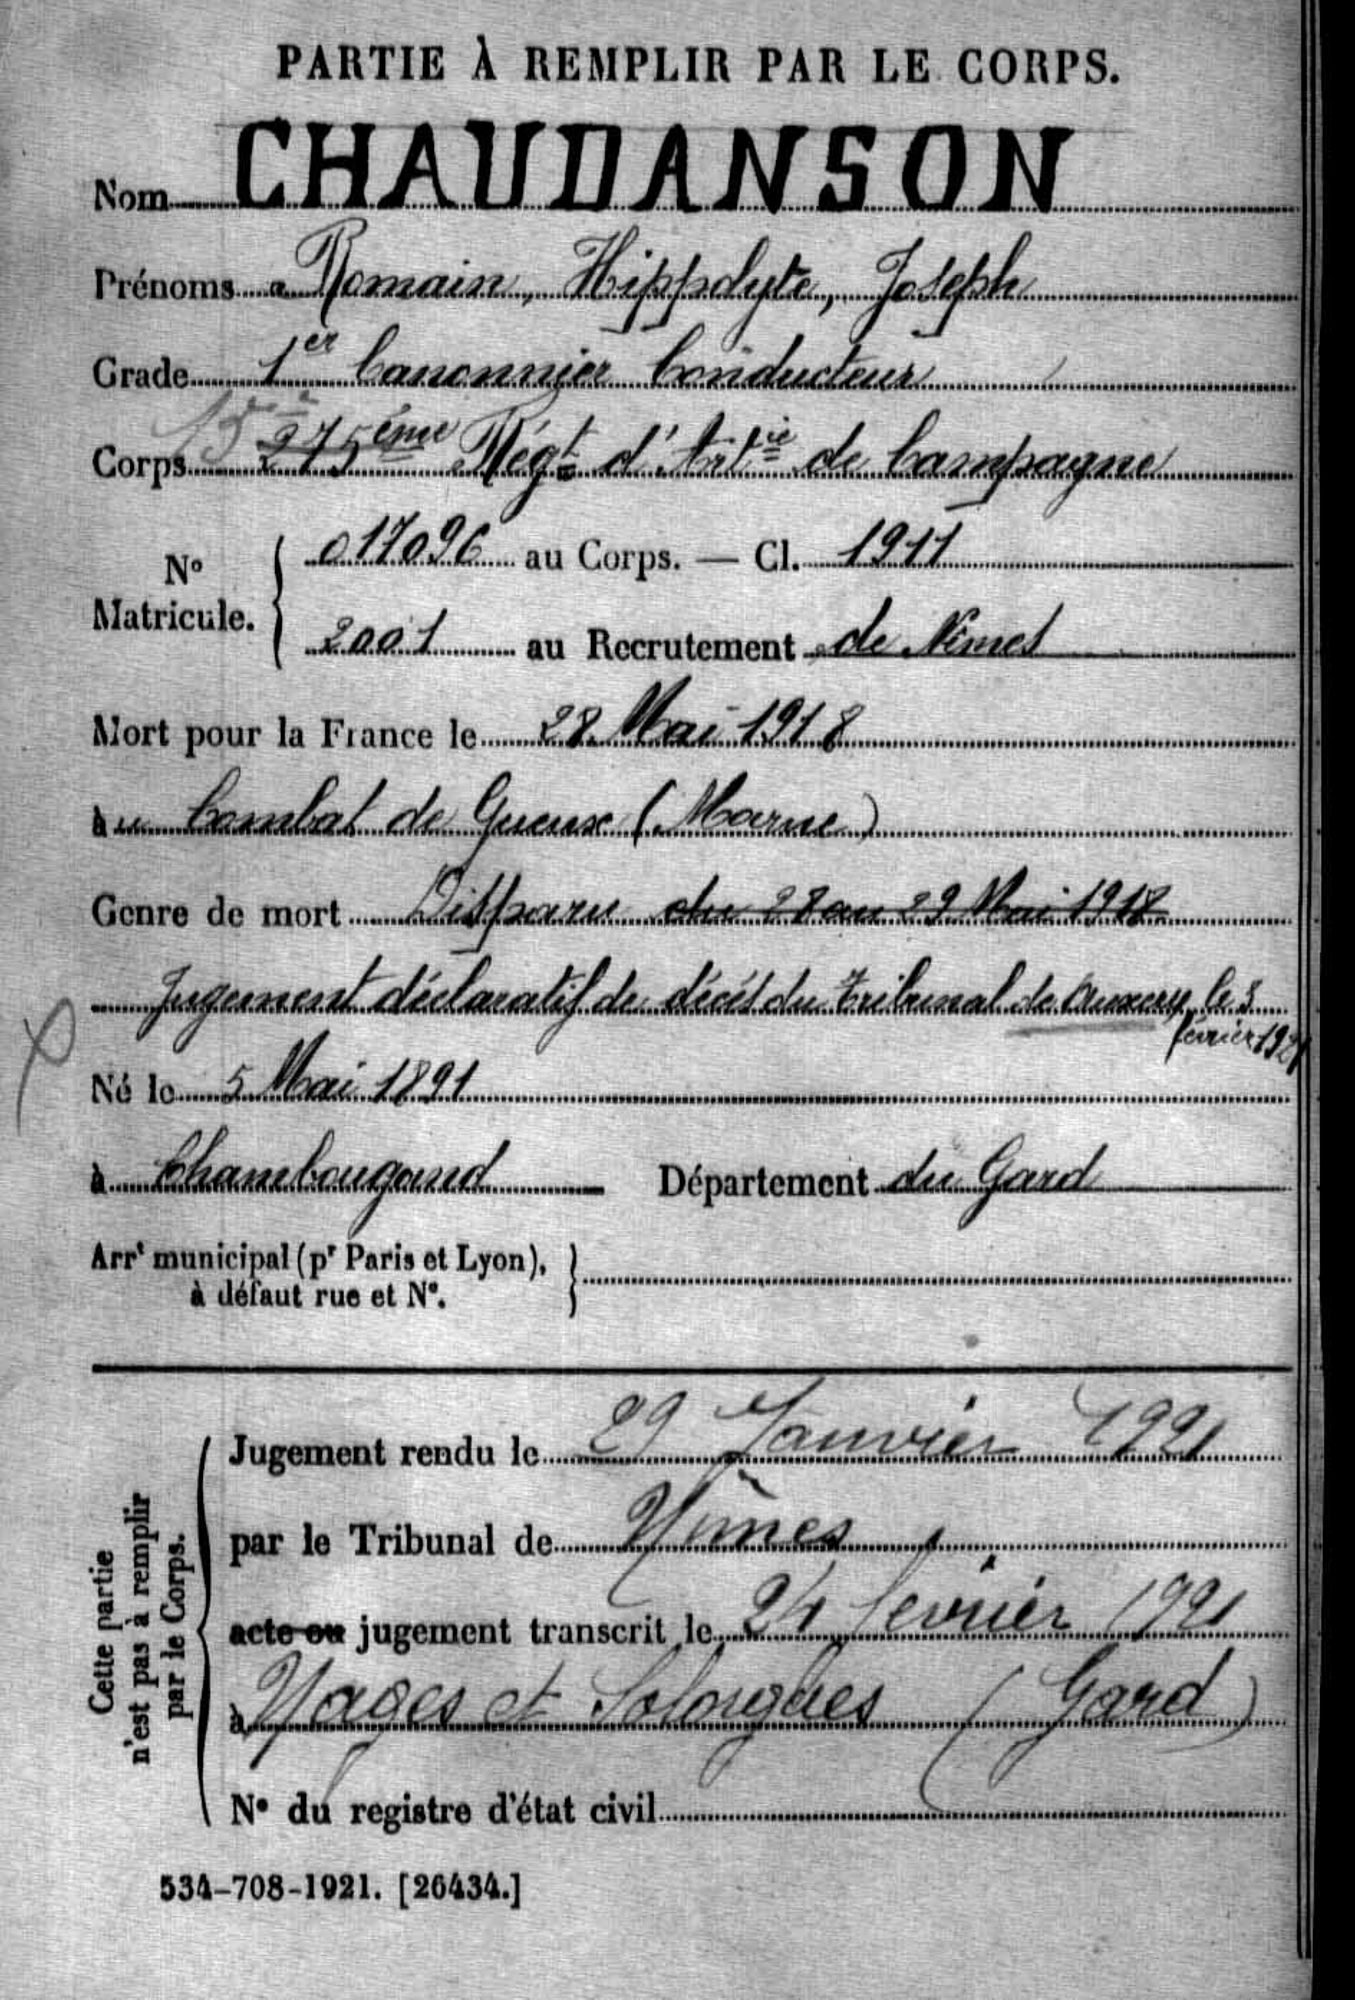 PARTIE À REMPLIR PAR LE CORPS.
Nom CHAUDANSON
Prénoms Romain, Hippolyte, Joseph
Grade 1er Canonnier Conducteur
Corps 275ème Régt d'Artie de Campagne
No Matricule. 017096 au Corps. — Cl. 1911
2001 au Recrutement de Nîmes
Mort pour la France le 28 Mai 1918
au Combat de Gueux (Marne)
Genre de mort Disparu du 28 au 29 Mai 1918
Jugement déclaratif de décès du Tribunal de le 3
février 1921
Né le 5 Mai 1891
à Chambougaud Département du Gard
Arrt municipal (pr Paris et Lyon),
à défaut rue et N°.
Cette partie
n'est pas à remplir
par le Corps.
Jugement rendu le 29 Janvier 1921
par le Tribunal de Nîmes
acte ou jugement transcrit le 24 février 1921
à Nages et Solorgues (Gard)
N° du registre d'état civil
534-708-1921. [26434.]